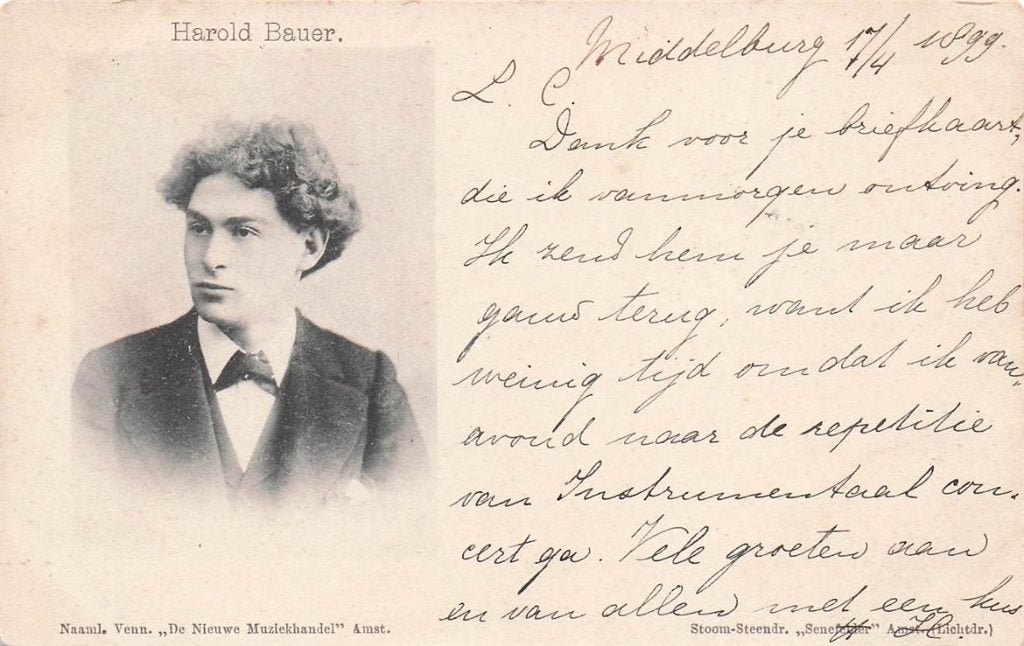 Harold Bauer.
Middelburg 17/4 1899.
L. C.
Dank voor je briefkaart,
die ik vanmorgen ontving.
Ik zend hem je maar
gauw terug, want ik heb
weinig tijd omdat ik van-
avond naar de repetitie
van Instrumentaal con-
cert ga. Vele groeten aan
en van allen met een kus
Naaml. Venn. „De Nieuwe Muziekhandel" Amst.
Stoom-Steendr. „Senefelder" Amst. (Lichtdr.)